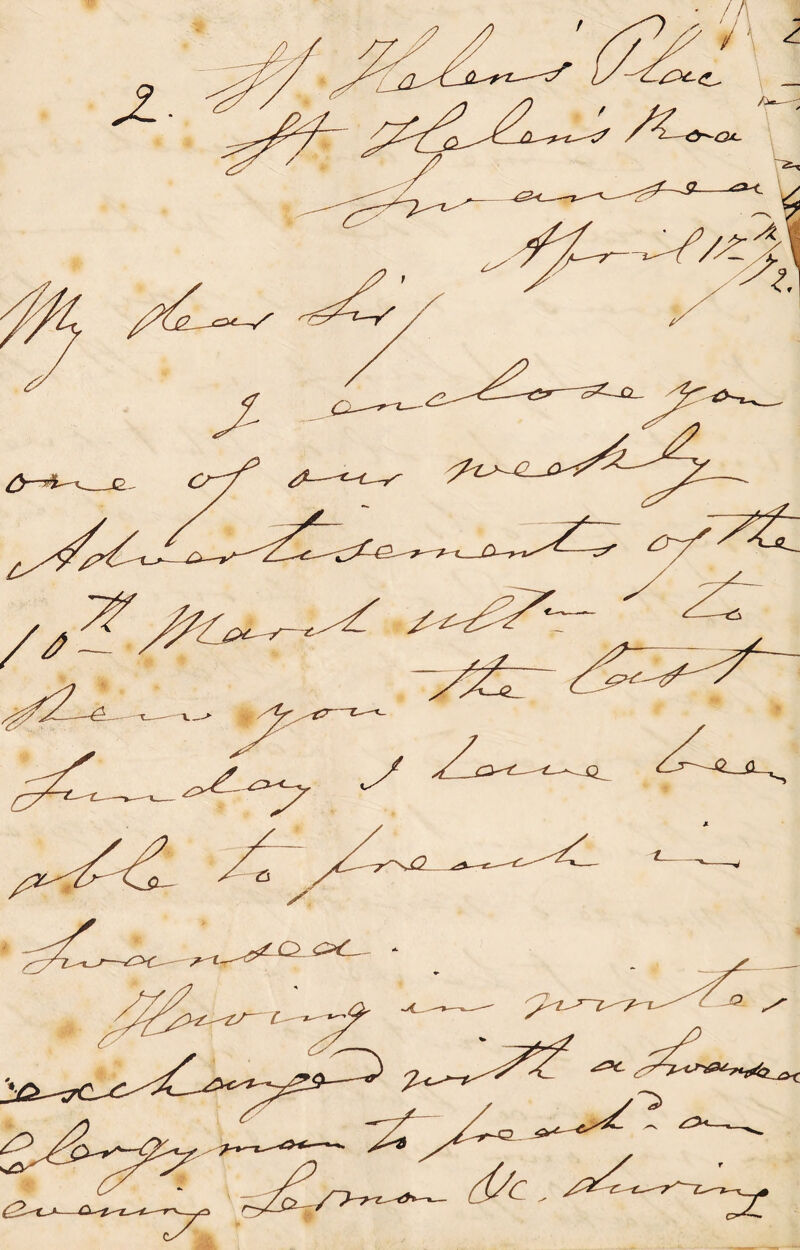 2. St Helen's Place
St Helen's Roa
Swansea
April 17th/72.
My dear Sir/
I enclose you
one of our weekly
Advertisements of the
10th March ult to
shew you the last
Sunday I have been
able to preach in
Swansea.
Having in winter
exchanged with a Swansea
Clergyman to preachd. an
evening Sermon &c. during